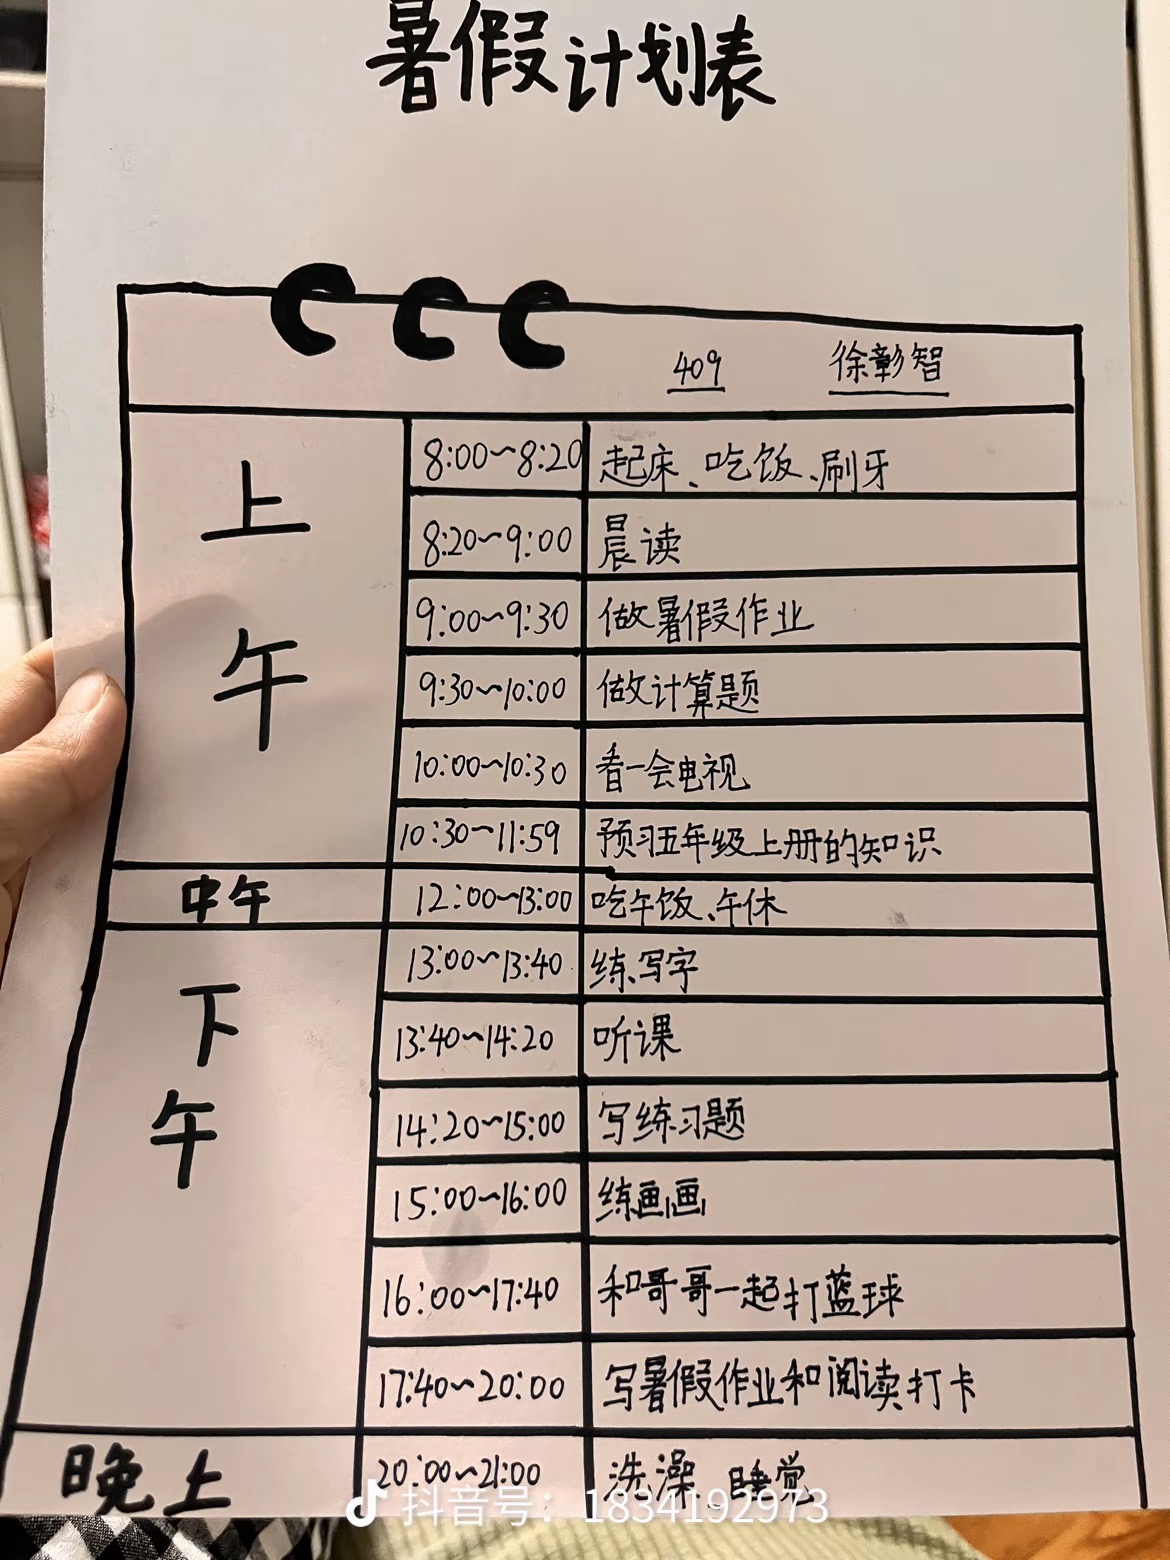 暑假计划表
409 徐彰智
上午
8:00~8:20 起床、吃饭、刷牙
8:20~9:00 晨读
9:00~9:30 做暑假作业
9:30~10:00 做计算题
10:00~10:30 看一会电视
10:30~11:59 预习五年级上册的知识
中午 12:00~13:00 吃午饭、午休
下午
13:00~13:40 练写字
13:40~14:20 听课
14:20~15:00 写练习题
15:00~16:00 练画画
16:00~17:40 和哥哥一起打蓝球
17:40~20:00 写暑假作业和阅读打卡
晚上 20:00~21:00 洗澡、睡觉
抖音号：1834192973